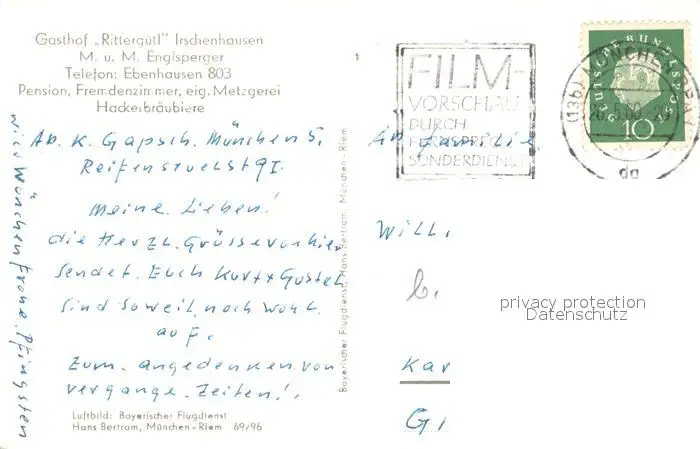 Gasthof „Rittergütl" Irschenhausen
M. u. M. Englsperger
Telefon: Ebenhausen 803
Pension, Fremdenzimmer, eig. Metzgerei
Hackerbräubiere
Ab. K. Gapsch. München 5.
Meine Lieben!
die Herzl. Grüsse von hier
sendet. Euch Kurt + Gustel
sind soweit noch wohl
auf.
Zum. angedenken von
vergange. Zeiten!.
wir Wünchen Frohe. Pfingsten
Luftbild: Bayerischer Flugdienst
Hans Bertram, München-Riem 69/96
Bayerischer Flugdienst, Hans Bertram, München-Riem
FILM-
VORSCHAU
DURCH
FERNSPRECH
SONDERDIENST
DEUTSCHE BUNDESPOST
10
(13b) MÜNCHEN
da
An Familie
Willi
b.
Kar
G
privacy protection
Datenschutz